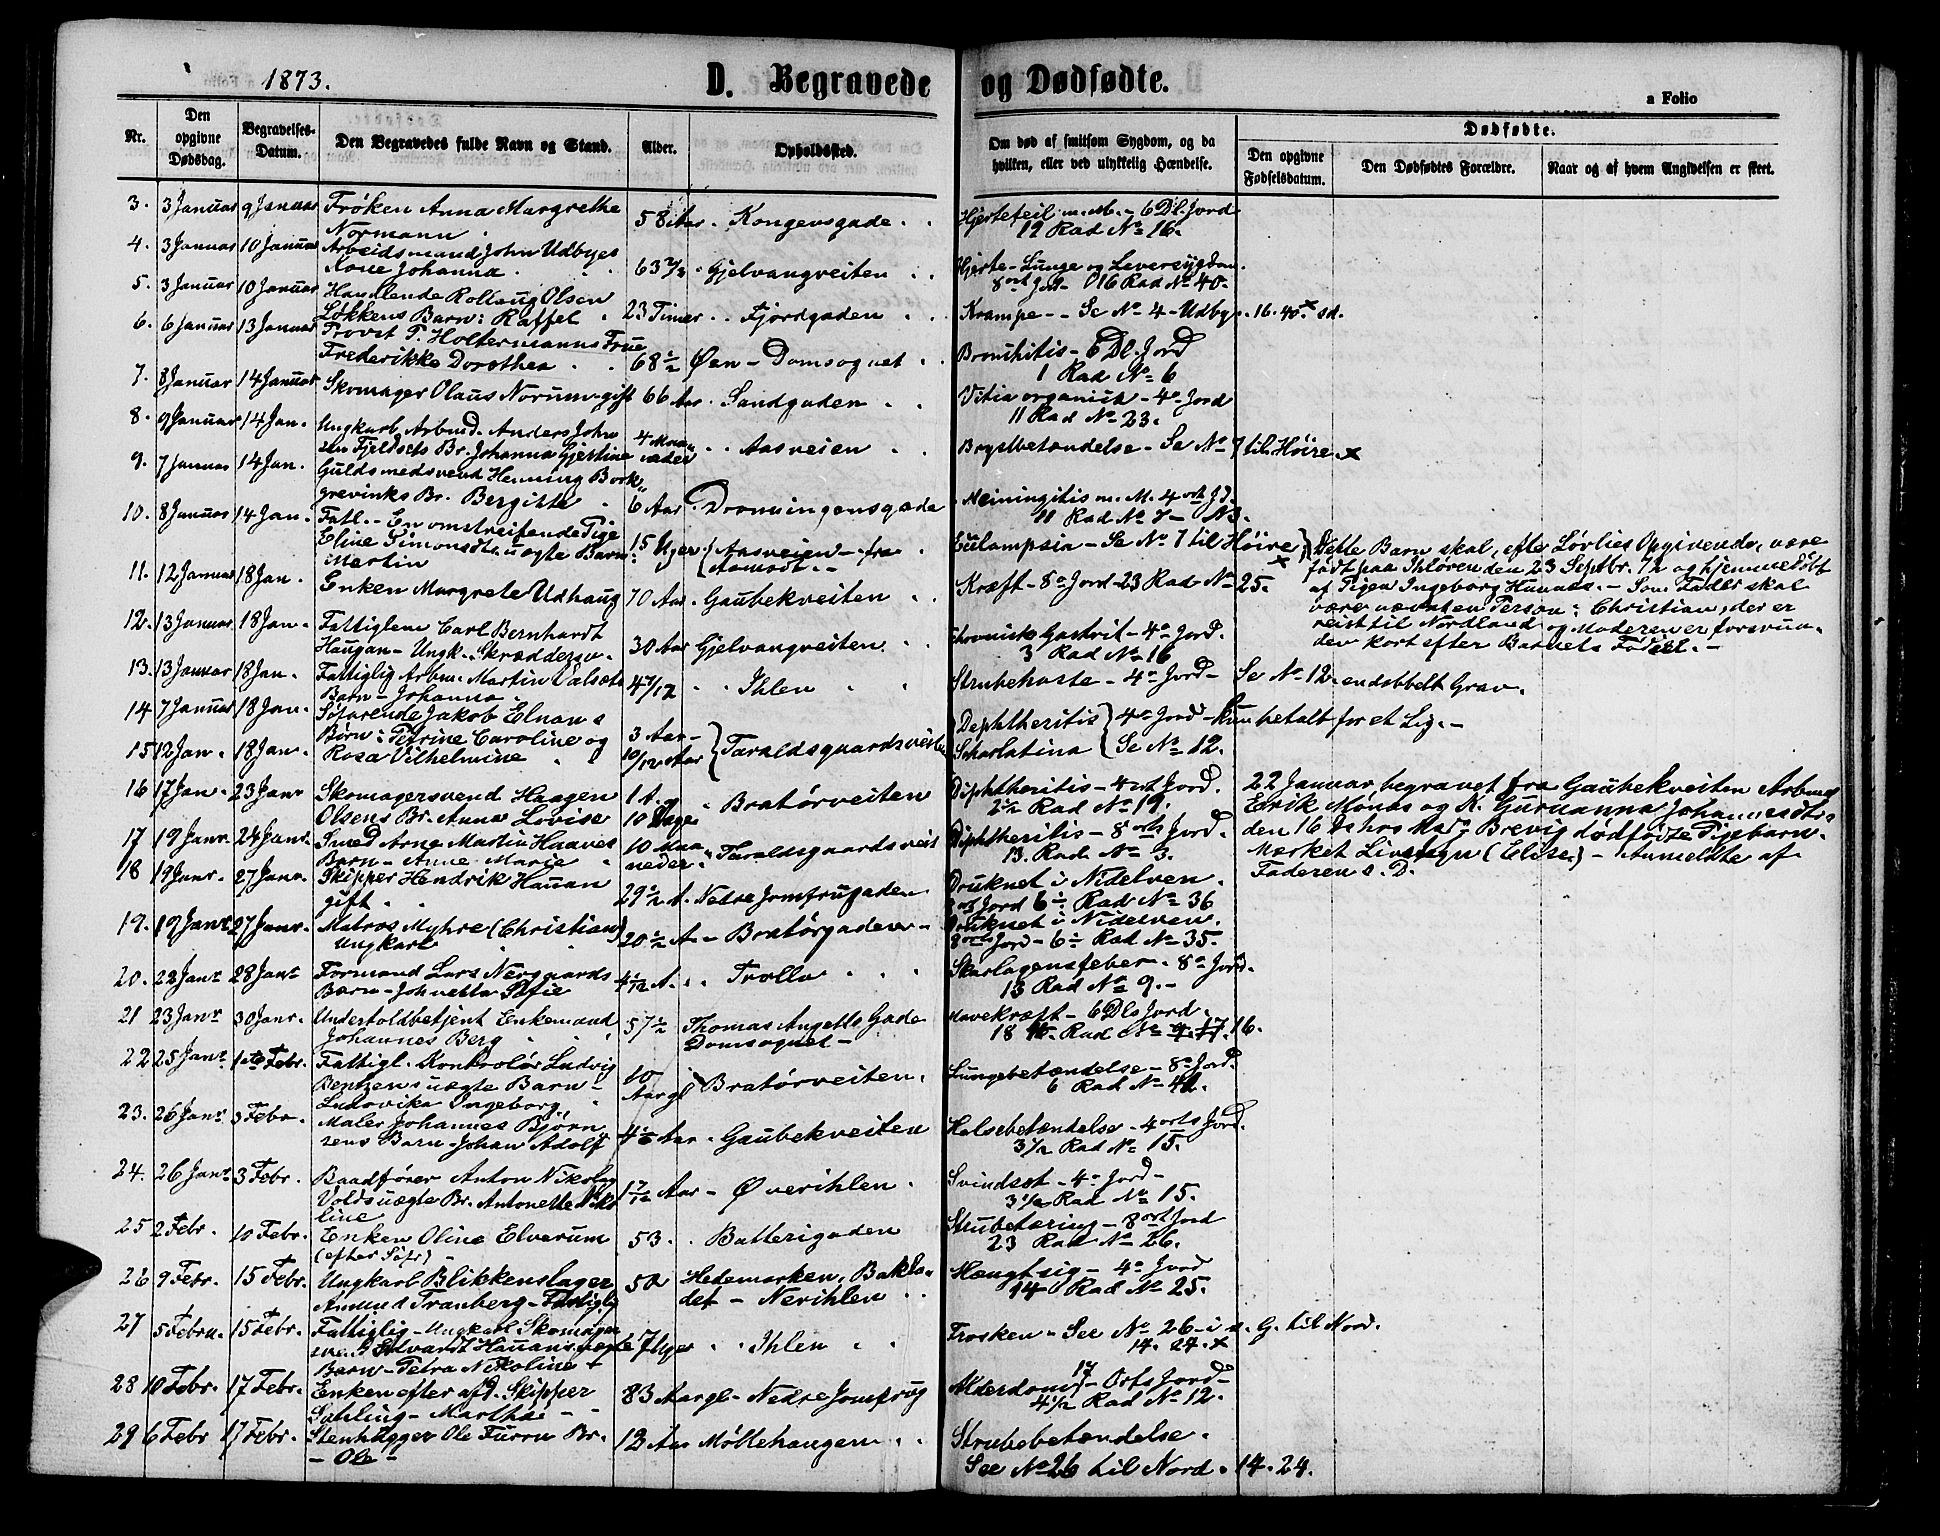 1873.
D. Begravede og Dødfødte.
a Folio
Nr.
Den opgivne Dødsdag.
Begravelses-Datum.
Den Begravedes fulde Navn og Stand.
Alder.
Opholdssted.
Om død af smitsom Sygdom, og da hvilken, eller ved ulykkelig Hændelse.
Dødfødte.
Den opgivne Fødselsdatum.
Den Dødfødtes Forældre.
Naar og af hvem Angivelsen er skeet.
3. 3 Januar 9 Januar Frøken Anna Margrethe 58 Aar Kongensgade Hjertefeil m.M. - 6 Dl. Jord
Normann 12 Rad No 16.
4. 3 Januar 10 Januar Arbeidsmand John Udbyes 63 Gjelvangveiten Hjerte-Lunge og Leversygdom.
Kone Johanna 8 ort Jord - 16 Rad No 40.
5. 3 Januar 10 Januar Handlende Rollaug Olsen
Løkkens Barn: Raffel 23 Timer Fjordgaden Krampe - Se No 4 - Udbye. 16. 40. x sd.
6. 6 Januar 13 Januar Provst P. Holtermanns Frue
Frederikke Dorothea 68 1/2 Øen - Domsognet Bronchitis - 6 Dl. Jord
1 Rad No 6
7. 8 Januar 14 Januar Skomager Olaus Norum - gift 66 Aar Sandgaden Vitia organica - 4 o Jord
11 Rad No 23.
8. 9 Januar 14 Jan. Ungkarl Arbmd. Anders John
sen Fjeldsets Br. Johanna Gjertine 4 Maaneder Aasveien Brystbetændelse - Se No 7 til Høire. x
9. 7 Januar 14 Jan. Guldsmedsvend Henning Bork
grevinks Br. Bergitte 6 Aar Dronningensgade Meiningitis m. M. 4 ort Jd.
11 Rad No 7 - N3.
10. 8 Januar 14 Jan. Fatl. - En omstreifende Pige
Eline Simonsdts uægte Barn: 15 Uger Aasveien - fra Eclampsia - Se No 7 til Høire x
Martin Aamodt. -
Dette Barn skal, efter Løvlies Opgivende, være
født paa Ihløren den 23 Septbr. 72 og hjemmedøbt
af Pigen Ingeborg Hannas. - Som Fader skal
være nævnt en Person: Christian, der er
reist til Nordland og Moderen er forsvun-
den kort efter Barnets Fødsel. -
11. 12 Januar 18 Jan. Enken Margrete Udhaug 70 Aar Gaubekveiten Kræft - 8 o Jord - 23 Rad No 25.
12. 13 Januar 18 Jan. Fattiglem Carl Bernhardt
Haugan - Ungk. Skræddersv. 30 Aar Gjelvangveiten Chronisk Gastrit - 4 o Jord.
3 Rad No 16
13. 13 Januar 18 Jan. Fattiglig Arbm. Martin Valsets 4 7/12 Ihlen Strubehoste - 4 o Jord - Se No 12. en dobbelt Grav.
Barn - Johanna
14 7 Januar 18 Jan. Søfarende Jakob Elnans
Børn: Petrine Caroline og 3 Aar Taraldsgaardsveiten Dephtheritis 4 o Jord - Kun betalt for et Lig. -
15 12 Jan. 18 Jan. Rosa Vilhelmine 10/12 Aar Skarlatina Se No 12.
16 17 Jan. 23 Janr Skomagersvend Haagen 1 A. og Bratørveiten Diphtheritis - 4 ort Jord.
Olsens Br. Anna Lovise 10 Dage 2 1/2 Rad No 19.
22 Januar begravet fra Gaubekveiten Arbmd
Erik Monds og K. Guruanna Johannesdts
den 16 Ds hos Mad. Brevig dødfødte Pigebarn.
Mærket Livstegn (Elise) - Anmeldte af
Faderen s. D.
17 19 Janr. 24 Janr. Smed Arne Martin Haaves 10 Maaneder Taraldsgaardsveit Diphtheritis - 8 orts Jord.
Barn - Anne Marie 13 Rad No 3.
18 19 Janr. 27 Janr. Skipper Hendrik Hauan 29 1/2 A. Nedre Jomfrugaden Druknet i Nidelven.
gift 8 ort Jord 6 Rad No 36
19. 19 Janr. 27 Janr. Matros Myhre (Christian) 20 1/2 A Bratørgaden Druknet i Nidelven.
Ungkarl 8 orts Jord - 6 Rad No 35.
20. 22 Janr 28 Janr Formand Lars Nergaards 4 1/12 A. Trolla Skarlagensfeber. 8 o Jord.
Barn - Johnetta Sofie 13 Rad No 9. -
21 23 Janr 30 Janr. Undertoldbetjent Enkemand 57 1/2 Thomas Angells Gade Mavekræft - 6 Dls Jord.
Johannes Berg Domsognet - 18 Rad No 9. 17 16.
22 25 Janr 1ste Febr. Fattigl. Kontrolør Ludvig
Bentzens uægte Barn - 10 Aar gl Bratørveiten. Lungebetændelse - 8 o Jord.
Ludovika Ingeborg 6 Rad No 42.
23. 26 Janr. 3 Febr. Maler Johannes Bjørn
sens Barn - Johan Adolf 4 1/2 Aar Gaubekveiten Halsebetændelse - 4 orts Jord.
3 1/2 Rad No 15.
24. 26 Janr. 3 Febr. Baadfører Anton Nikolay
Volds uægte Br. Antonette Niko 1 7/12 Aar - Øverihlen Svindsot - 4 o Jord -
line 3 1/2 Rad No 15.
25 2 Febr. 10 Febr. Enken Oline Elverum 53. Batterigaden Strubetæring - 8 ort Jord
(efter Søfr) 23 Rad No 26.
26 9 Febr. 15 Febr. Ungkarl Blikkenslager 50 Hedemarken, Baklan Hængt sig - 4 o Jord
Amund Tranberg - Fattiglig det - Nerihlen 14 Rad No 25.
27 5 Febru. 15 Febr. Fattiglig - Ungkarl Skomager
sven. Edvardt Hauans uægte 7 Uger Ihlen Trosken - See No 26 - i s. G. til Nord.
Barn - Petra Nikoline 14. 24. x
28 10 Febr. 17 Febr. Enken efter afd. Skipper 83 Aar gl - Nedre Jomfrug Alderdom - 17 Orts Jord -
Sahling - Martha 4 1/2 Rad No 12.
29 6 Febr 17 Febr. Stenhugger Ole Furru Br. 12 Aar Møllehaugen Strubebetændelse.
- Ole - See No 26 til Nord. 14. 24.